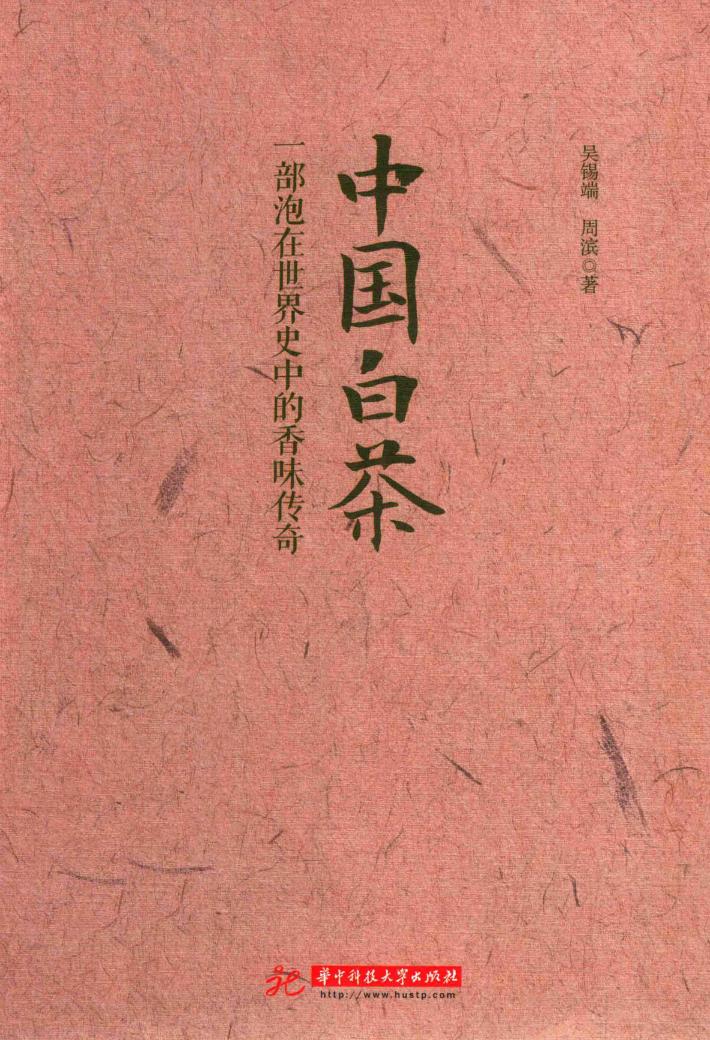 吴锡端 周滨◎著
中国白茶
一部泡在世界史中的香味传奇
华中科技大学出版社
http://www.hustp.com